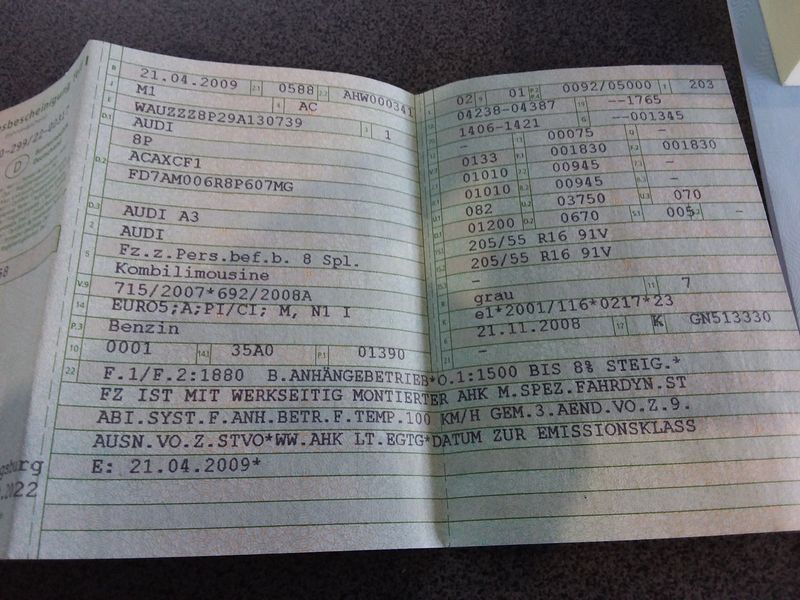 B 21.04.2009 2.1 0588 2.2 AHW000341
J M1 4 AC
E WAUZZZ8P29A130739 3 1
D.1 AUDI
8P
D.2 ACAXCF1
FD7AM006R8P607MG
D.3 AUDI A3
2 AUDI
5 Fz.z.Pers.bef.b. 8 Spl.
Kombilimousine
V.9 715/2007*692/2008A
14 EURO5;A;PI/CI; M, N1 I
P.3 Benzin
10 0001 14.1 35A0 P.1 01390
22 F.1/F.2:1880 B.ANHÄNGEBETRIEB*O.1:1500 BIS 8% STEIG.*
FZ IST MIT WERKSEITIG MONTIERTER AHK M.SPEZ.FAHRDYN.ST
ABI.SYST.F.ANH.BETR.F.TEMP.100 KM/H GEM.3.AEND.VO.Z.9.
AUSN.VO.Z.STVO*WW.AHK LT.EGTG*DATUM ZUR EMISSIONSKLASS
E: 21.04.2009*
02 9 01 0092/05000 203
04238-04387 --1765
1406-1421 --001345
- 00075 -
0133 001830 001830
01010 00945 -
01010 00945 -
082 03750 U.3 070
01200 0670 S.1 005 -
205/55 R16 91V
205/55 R16 91V
-
R grau 11 7
e1*2001/116*0217*23
6 21.11.2008 17 K GN513330
21 -